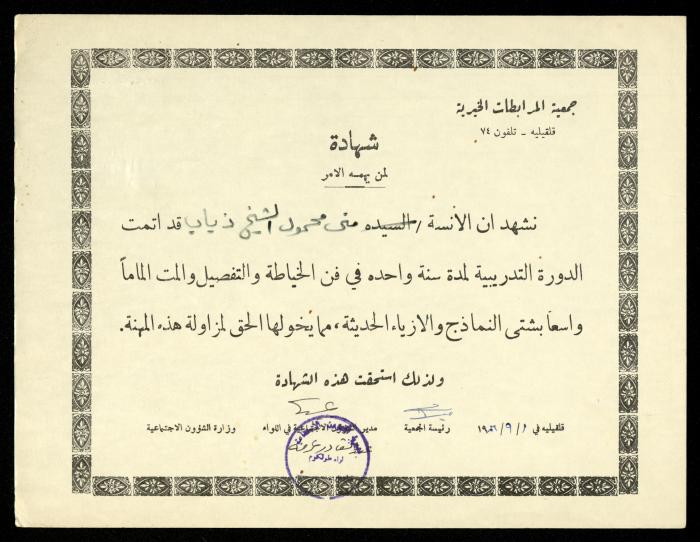 جمعية المرابطات الخيرية
قلقيليه - تلفون ٧٤
شهادة
لمن يهمه الامر
نشهد ان الآنسة / السيده منى محمود الشيخ ذياب قد اتمت
الدورة التدريبية لمدة سنة واحده في فن الخياطة والتفصيل والمت الماماً
واسعاً بشتى النماذج والازياء الحديثة، مما يخولها الحق لمزاولة هذه المهنة.
ولذلك استحقت هذه الشهادة
قلقيليه في ١/٩/١٩ رئيسة الجمعية مدير الشؤون الاجتماعية في اللواء وزارة الشؤون الاجتماعية
لواء طولكرم